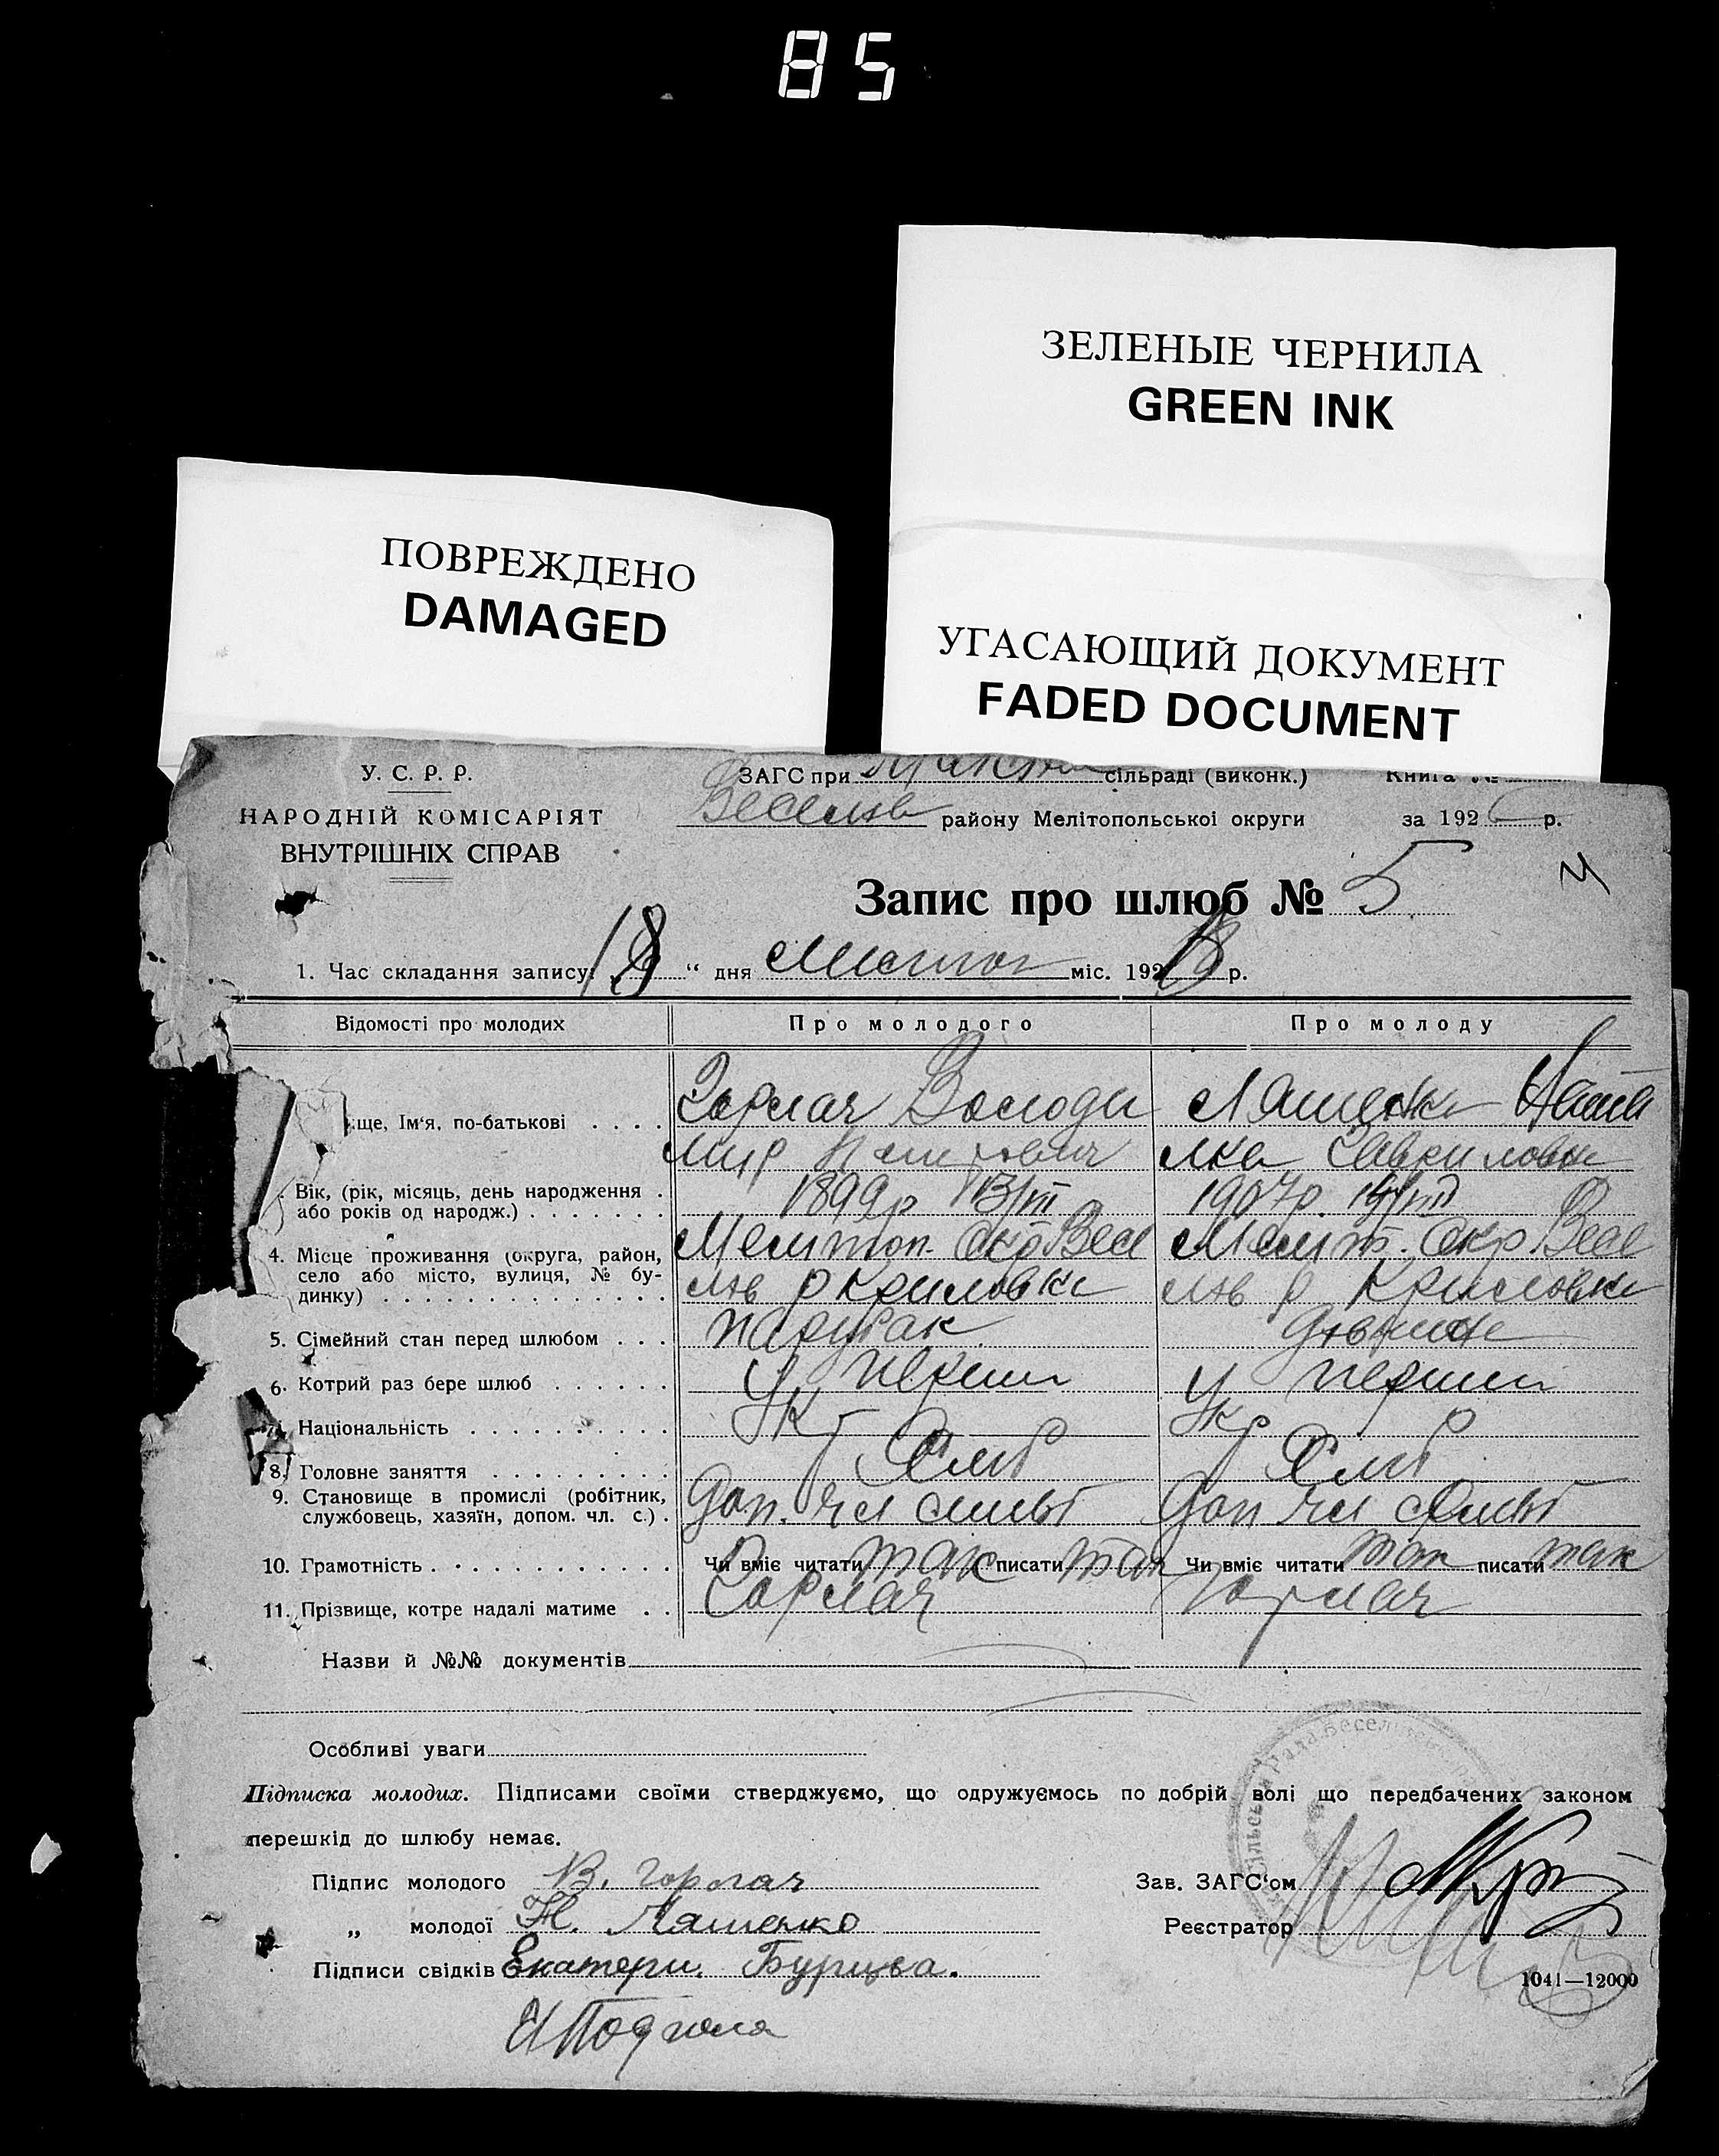 85
ЗЕЛЕНЫЕ ЧЕРНИЛА
GREEN INK
ПОВРЕЖДЕНО
DAMAGED
УГАСАЮЩИЙ ДОКУМЕНТ
FADED DOCUMENT
У. С. Р. Р.
ЗАГС при сільраді (виконк.) Книга №
НАРОДНІЙ КОМІСАРІЯТ
ВНУТРІШНІХ СПРАВ
району Мелітопольської округи за 1926 р.
Запис про шлюб № 5
1. Час складання запису: 18 “ дня міс. 192 р.
Відомості про молодих
Про молодого
Про молоду
ще, Ім'я, по-батькові . . . .
Горлач Володи
мир
Лященко Ната
лка
Вік, (рік, місяць, день народження .
або років од народж.) . . . . . . .
1899р 13/III
1907р.
4. Місце проживання (округа, район,
село або місто, вулиця, № бу-
динку) . . . . . . . . . . . . . .
Мелітоп. Окр Весе
лів р Крилов
Меліт. Окр. Весе
лів р Крилов
5. Сімейний стан перед шлюбом . . .
парубак
дівчина
6. Котрий раз бере шлюб . . . . . .
У перший
У перший
7. Національність . . . . . . . . . .
Укр
Укр
8. Головне заняття . . . . . . . . .
9. Становище в промислі (робітник,
службовець, хазяїн, допом. чл. с.) .
Доп. чл
Доп чл
10. Грамотність . . . . . . . . . . . .
Чи вміє читати так писати так
Чи вміє читати так писати так
11. Прізвище, котре надалі матиме . .
Горлач
Горлач
Назви й №№ документів
Особливі уваги
Підписка молодих. Підписами своїми стверджуємо, що одружуємось по добрій волі що передбачених законом
перешкід до шлюбу немає.
Підпис молодого В. Горлач
Зав. ЗАГС'ом
„ молодої Н. Лященко
Реєстратор
Підписи свідків Екатери. Бурцева.
1041—12000